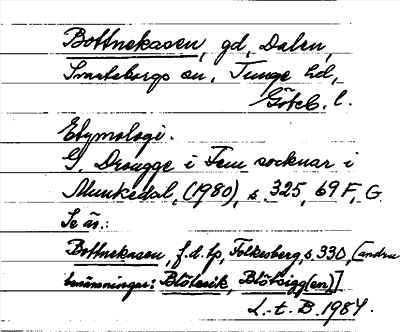 Bottnekasen, gd, Dalen,
Svarteborgs sn, Tunge hd,
Göteb. l.
Etymologi.
G. Drougge i Fem socknar i
Munkedal, (1980), s. 325, 69 F, G.
Se äv.:
Bottnekasen, f.d. tp, Folkesberg, s. 330, [andra
benämningar: Blötevik, Blötsigg(en)]
L.-t. B. 1984.